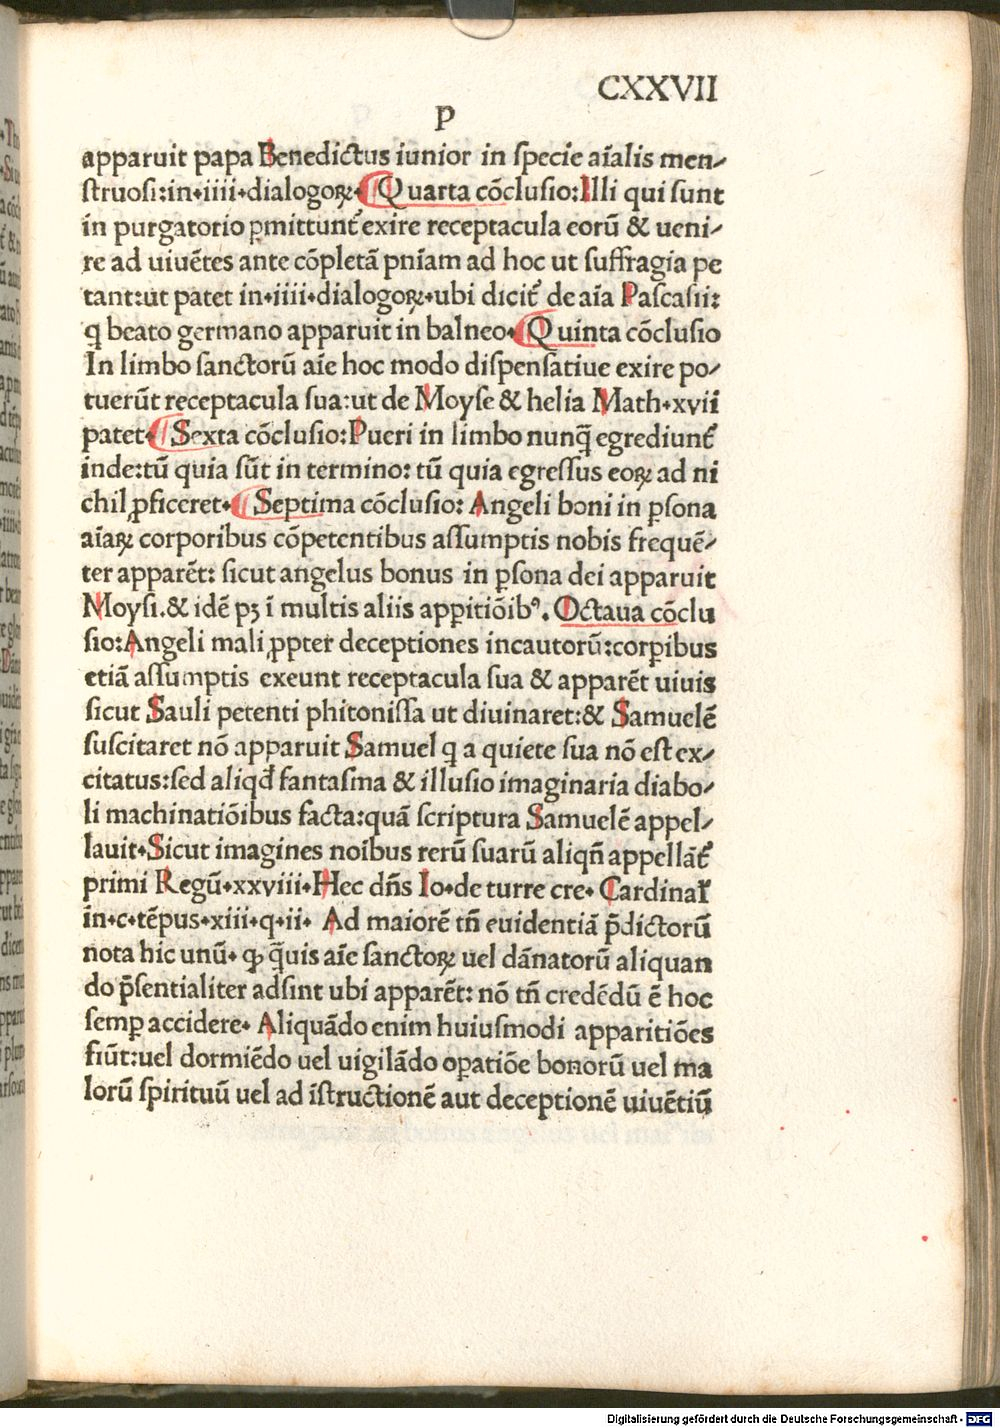 CXXVII
P
apparuit papa Benedictus iunior in specie aīalis men-
struosi:in·iiii·dialogoꝝ· Quarta cōclusio:Illi qui sunt
in purgatorio ꝑmittunt᷑ exire receptacula eorū & ueni-
re ad uiuētes ante cōpletā pnīam ad hoc ut suffragia pe
tant:ut patet in·iiii·dialogoꝝ·ubi dicit᷑ de aīa Pascasii:
q̄ beato germano apparuit in balneo· Quinta cōclusio
In limbo sanctorū aīe hoc modo dispensatiue exire po-
tuerūt receptacula sua:ut de Moyse & helia Math·xvii
patet· Sexta cōclusio:Pueri in limbo nunq̄ egrediunt᷑
inde:tū quia sūt in termino: tū quia egressus eoꝝ ad ni
chil ꝓficeret· Septima cōclusio: Angeli boni in ꝑsona
aīaꝝ corporibus cōpetentibus assumptis nobis frequē-
ter apparēt: sicut angelus bonus in ꝑsona dei apparuit
Moysi.& idē pꝫ ī multis aliis appitiōibꝰ. Octaua cōclu
sio:Angeli mali ꝓpter deceptiones incautorū:corꝑibus
etiā assumptis exeunt receptacula sua & apparēt uiuis
sicut Sauli petenti phitonissa ut diuinaret:& Samuelē
suscitaret nō apparuit Samuel q̄ a quiete sua nō est ex-
citatus:sed aliqđ fantasma & illusio imaginaria diabo-
li machinatiōibus facta:quā scriptura Samuelē appel-
lauit·Sicut imagines noībus rerū suarū aliqn̄ appellāt᷑
primi Regū·xxviii·Hec dn̄s Io·de turre cre· Cardinaƚ
in·c·tēpus·xiii·q·ii· Ad maiorē tn̄ euidentiā p̄dictorū
nota hic unū· ꝙ q̄uis aīe sanctoꝝ uel dānatorū aliquan
do p̄sentialiter adsint ubi apparēt: nō tn̄ credēdū ē hoc
semꝑ accidere· Aliquādo enim huiusmodi apparitiōes
fiūt:uel dormiēdo uel uigilādo oꝑatiōe bonorū uel ma
lorū spirituū uel ad īstructionē aut deceptionē uiuētiū
Digitalisierung gefördert durch die Deutsche Forschungsgemeinschaft - DFG